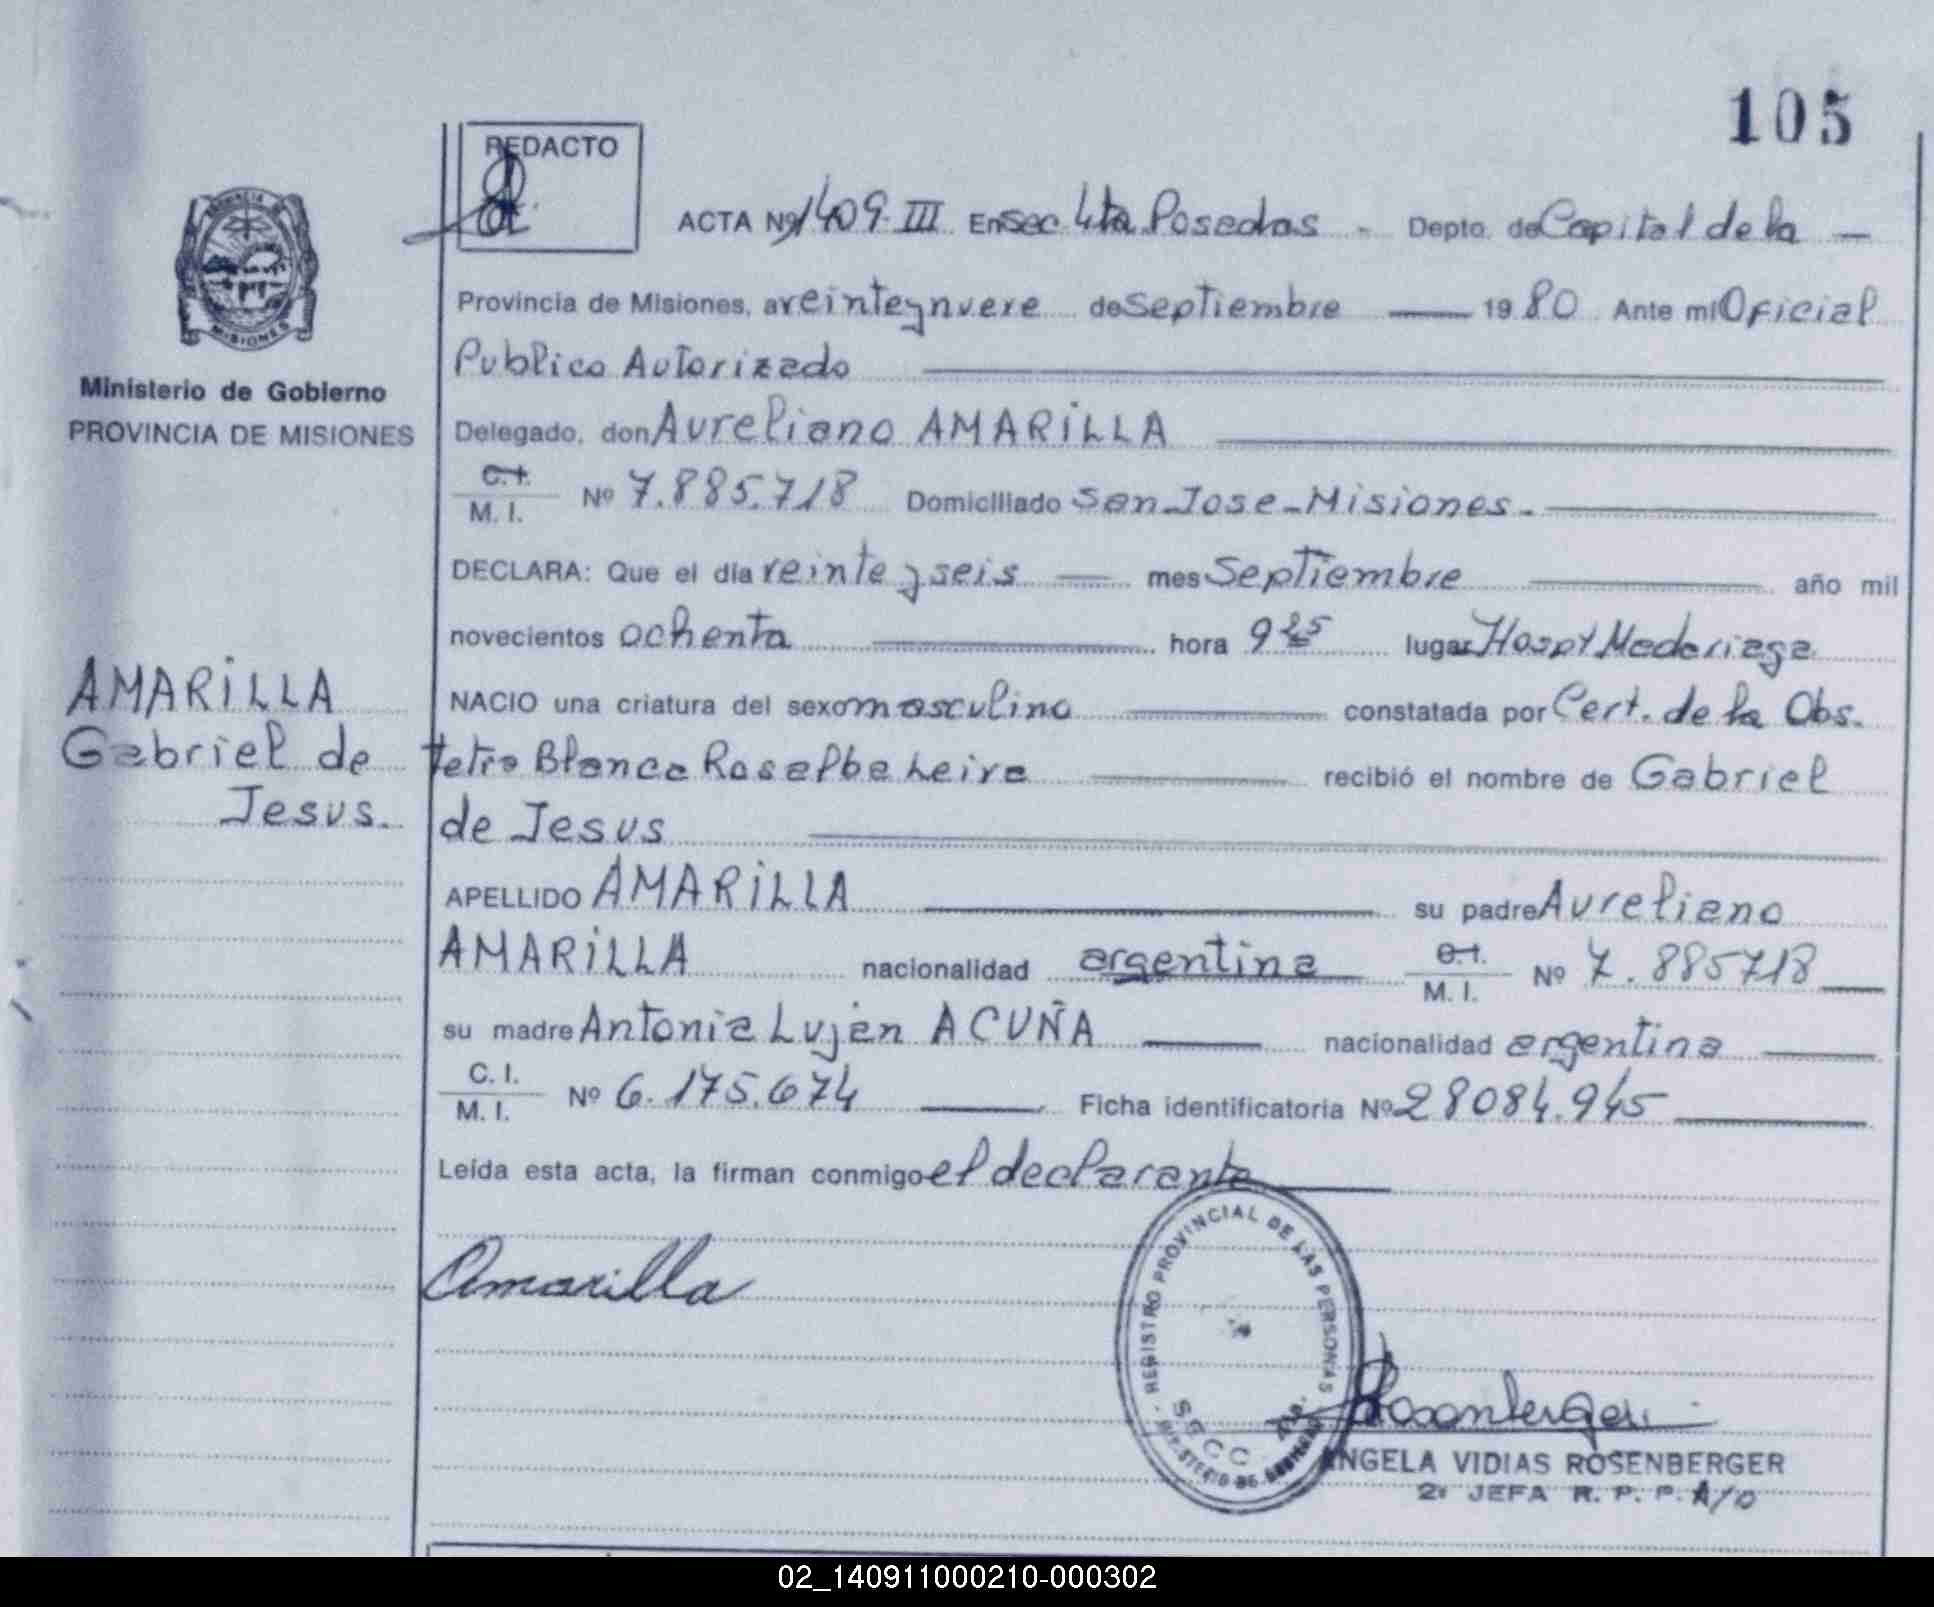 105
REDACTO
ACTA Nº 1409-III En Sec. 4ta Posadas - Depto. de Capital de la —
PROVINCIA DE
MISIONES
Provincia de Misiones, a veinte y nueve de septiembre — 19 80 Ante mi Oficial
Publico Autorizado
Ministerio de Gobierno
PROVINCIA DE MISIONES
Delegado, don Aureliano AMARILLA
C.I.
M. I. Nº 7.885.718 Domiciliado San Jose - Misiones.-
DECLARA: Que el día veinte y seis — mes Septiembre año mil
novecientos ochenta hora 9 lugar Hospt Madariaga
NACIO una criatura del sexo masculino constatada por Cert. de la Obs.
tetra Blanca Rosalba Leiva recibió el nombre de Gabriel
de Jesus
AMARILLA
Gabriel de
Jesus.
APELLIDO AMARILLA su padre Aureliano
AMARILLA nacionalidad argentina C.I.
M. I. Nº 7.885718
su madre Antonia Luján ACUÑA nacionalidad argentina
C. I.
M. I. Nº 6.175.674 Ficha identificatoria Nº 28084.945
Leída esta acta, la firman conmigo el declarante
Amarilla
REGISTRO PROVINCIAL DE LAS PERSONAS
SECC. 4TA.
MINISTERIO DE GOBIERNO
Rosenberger
ANGELA VIDIAS ROSENBERGER
2ª JEFA R. P. P. A/O
02_140911000210-000302